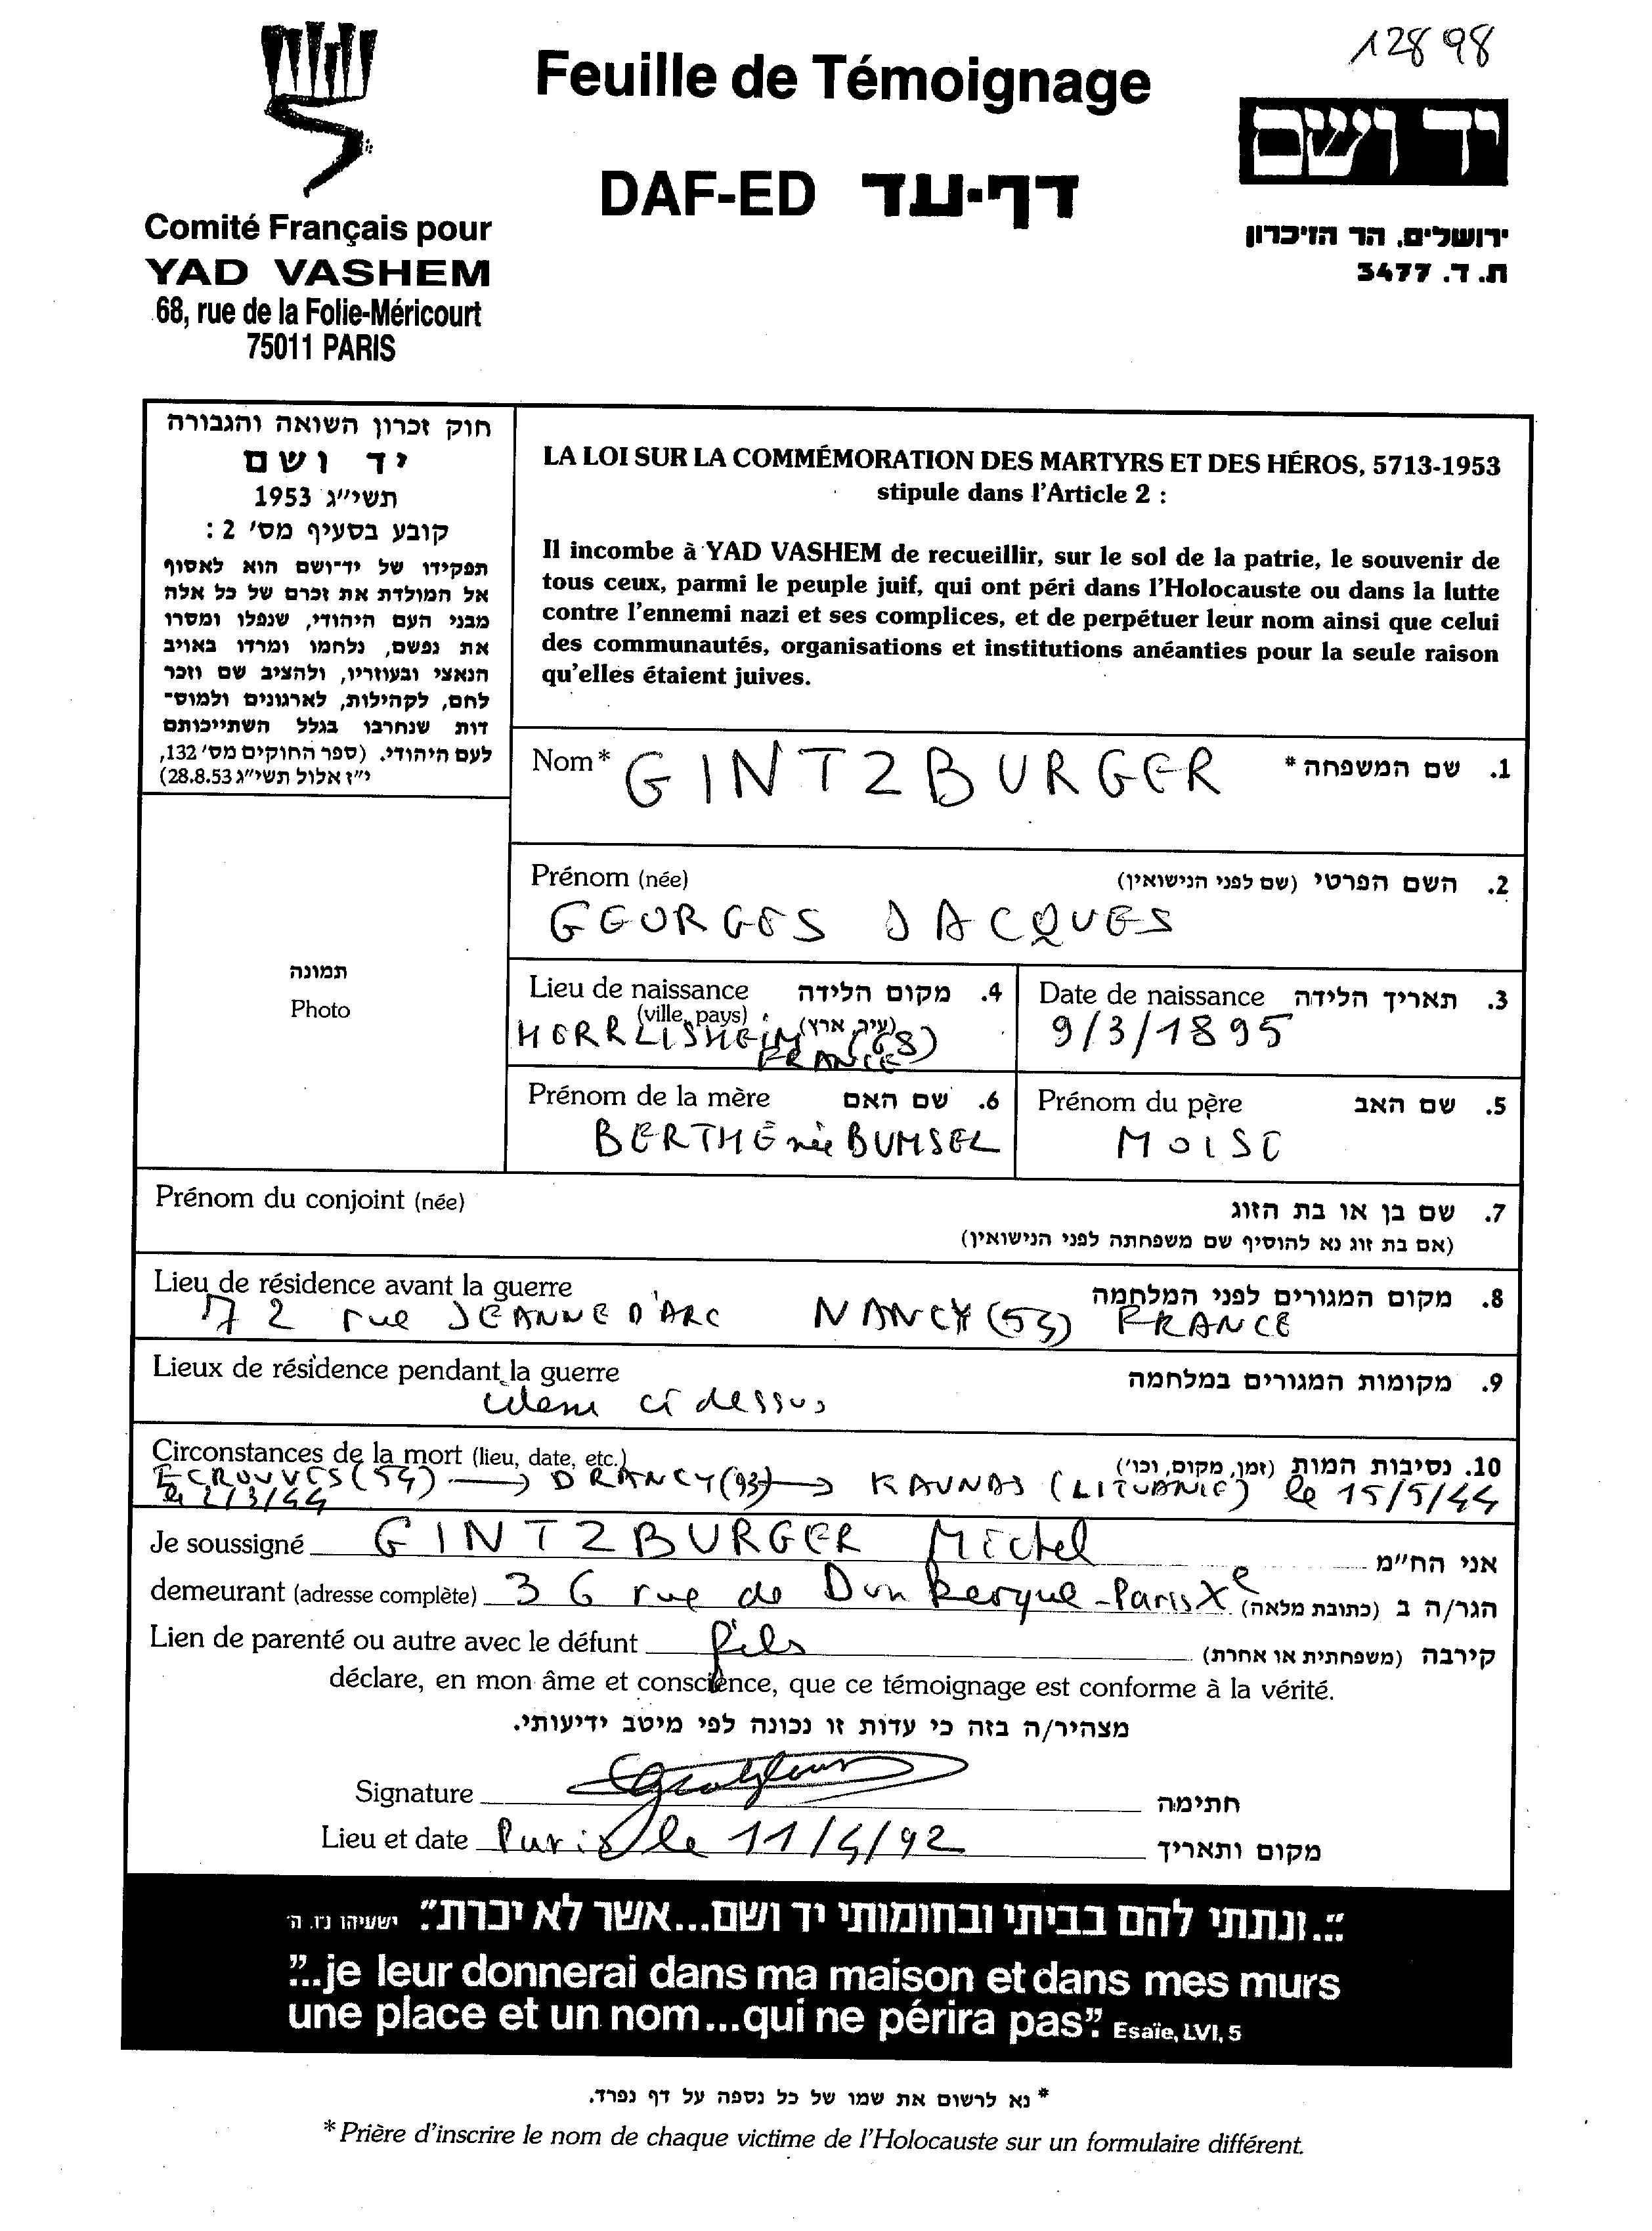 12898
Feuille de Témoignage
DAF-ED דף-עד
יד ושם
ירושלים, הר הזיכרון
ת. ד. 3477
Comité Français pour
YAD VASHEM
68, rue de la Folie-Méricourt
75011 PARIS
חוק זכרון השואה והגבורה
יד ושם
תשי״ג 1953
קובע בסעיף מס׳ 2 :
תפקידו של יד־ושם הוא לאסוף
אל המולדת את זכרם של כל אלה
מבני העם היהודי, שנפלו ומסרו
את נפשם, נלחמו ומרדו באויב
הנאצי ובעוזריו, ולהציב שם וזכר
להם, לקהילות, לארגונים ולמוס־
דות שנחרבו בגלל השתייכותם
לעם היהודי. (ספר החוקים מס׳ 132,
י״ז אלול תשי״ג 28.8.53)
LA LOI SUR LA COMMÉMORATION DES MARTYRS ET DES HÉROS, 5713-1953
stipule dans l'Article 2 :
Il incombe à YAD VASHEM de recueillir, sur le sol de la patrie, le souvenir de
tous ceux, parmi le peuple juif, qui ont péri dans l'Holocauste ou dans la lutte
contre l'ennemi nazi et ses complices, et de perpétuer leur nom ainsi que celui
des communautés, organisations et institutions anéanties pour la seule raison
qu'elles étaient juives.
Nom* GINTZBURGER 1. שם המשפחה *
Prénom (née) 2. השם הפרטי (שם לפני הנישואין)
GEORGES JACQUES
תמונה
Photo
Lieu de naissance 4. מקום הלידה
(ville, pays) (עיר, ארץ)
HERRLISHEIM (68)
FRANCE
Date de naissance 3. תאריך הלידה
9/3/1895
Prénom de la mère 6. שם האם
BERTHE née BUMSEL
Prénom du père 5. שם האב
MOISE
Prénom du conjoint (née) 7. שם בן או בת הזוג
(אם בת זוג נא להוסיף שם משפחתה לפני הנישואין)
Lieu de résidence avant la guerre 8. מקום המגורים לפני המלחמה
172 rue JEANNE D'ARC NANCY (54) FRANCE
Lieux de résidence pendant la guerre 9. מקומות המגורים במלחמה
idem ci dessus
Circonstances de la mort (lieu, date, etc.) 10. נסיבות המות (זמן, מקום, וכו׳)
ECROUVES (54) → DRANCY (93) → KAUNAS (LITUANIE) le 15/5/44
le 2/3/44
Je soussigné GINTZBURGER Michel אני הח״מ
demeurant (adresse complète) 36 rue de Dunkerque - Paris Xe הגר/ה ב (כתובת מלאה)
Lien de parenté ou autre avec le défunt fils קירבה (משפחתית או אחרת)
déclare, en mon âme et conscience, que ce témoignage est conforme à la vérité.
מצהיר/ה בזה כי עדות זו נכונה לפי מיטב ידיעותי.
Signature חתימה
Lieu et date Paris le 11/4/92 מקום ותאריך
״...ונתתי להם בביתי ובחומותי יד ושם...אשר לא יכרת״. ישעיהו נ״ו. ה׳
"...je leur donnerai dans ma maison et dans mes murs
une place et un nom...qui ne périra pas". Esaïe, LVI, 5
* נא לרשום את שמו של כל נספה על דף נפרד.
* Prière d'inscrire le nom de chaque victime de l'Holocauste sur un formulaire différent.